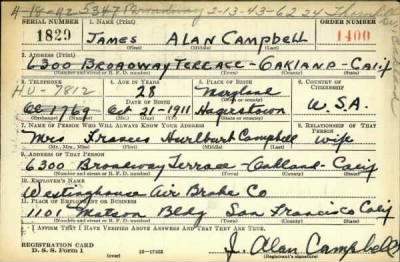 4-18-42 5347 Broadway 2-13-43-62
SERIAL NUMBER 1. NAME (Print) ORDER NUMBER
1829 JAMES ALAN CAMPBELL 1400
(First) (Middle) (Last)
2. ADDRESS (Print)
6300 BROADWAY TERRACE - OAKLAND - CALIF
(Number and street or R. F. D. number) (Town) (County) (State)
3. TELEPHONE 4. AGE IN YEARS 5. PLACE OF BIRTH 6. COUNTRY OF CITIZENSHIP
HU - 7812 28 Maryland
DATE OF BIRTH
OL 1769 Oct 21-1911 Hagerstown U.S.A.
(Exchange) (Number) (Mo.) (Day) (Yr.) (Town or county) (State or country)
7. NAME OF PERSON WHO WILL ALWAYS KNOW YOUR ADDRESS 8. RELATIONSHIP OF THAT PERSON
Mrs Frances Hurlburt Campbell wife
(Mr., Mrs., Miss) (First) (Middle) (Last)
9. ADDRESS OF THAT PERSON
6300 Broadway Terrace - Oakland - Calif
(Number and street or R. F. D. number) (Town) (County) (State)
10. EMPLOYER'S NAME
Westinghouse Air Brake Co
11. PLACE OF EMPLOYMENT OR BUSINESS
1101 Matson Bldg San Francisco Calif
(Number and street or R. F. D. number) (Town) (County) (State)
I AFFIRM THAT I HAVE VERIFIED ABOVE ANSWERS AND THAT THEY ARE TRUE.
REGISTRATION CARD
D. S. S. Form 1 (over) J. Alan Campbell